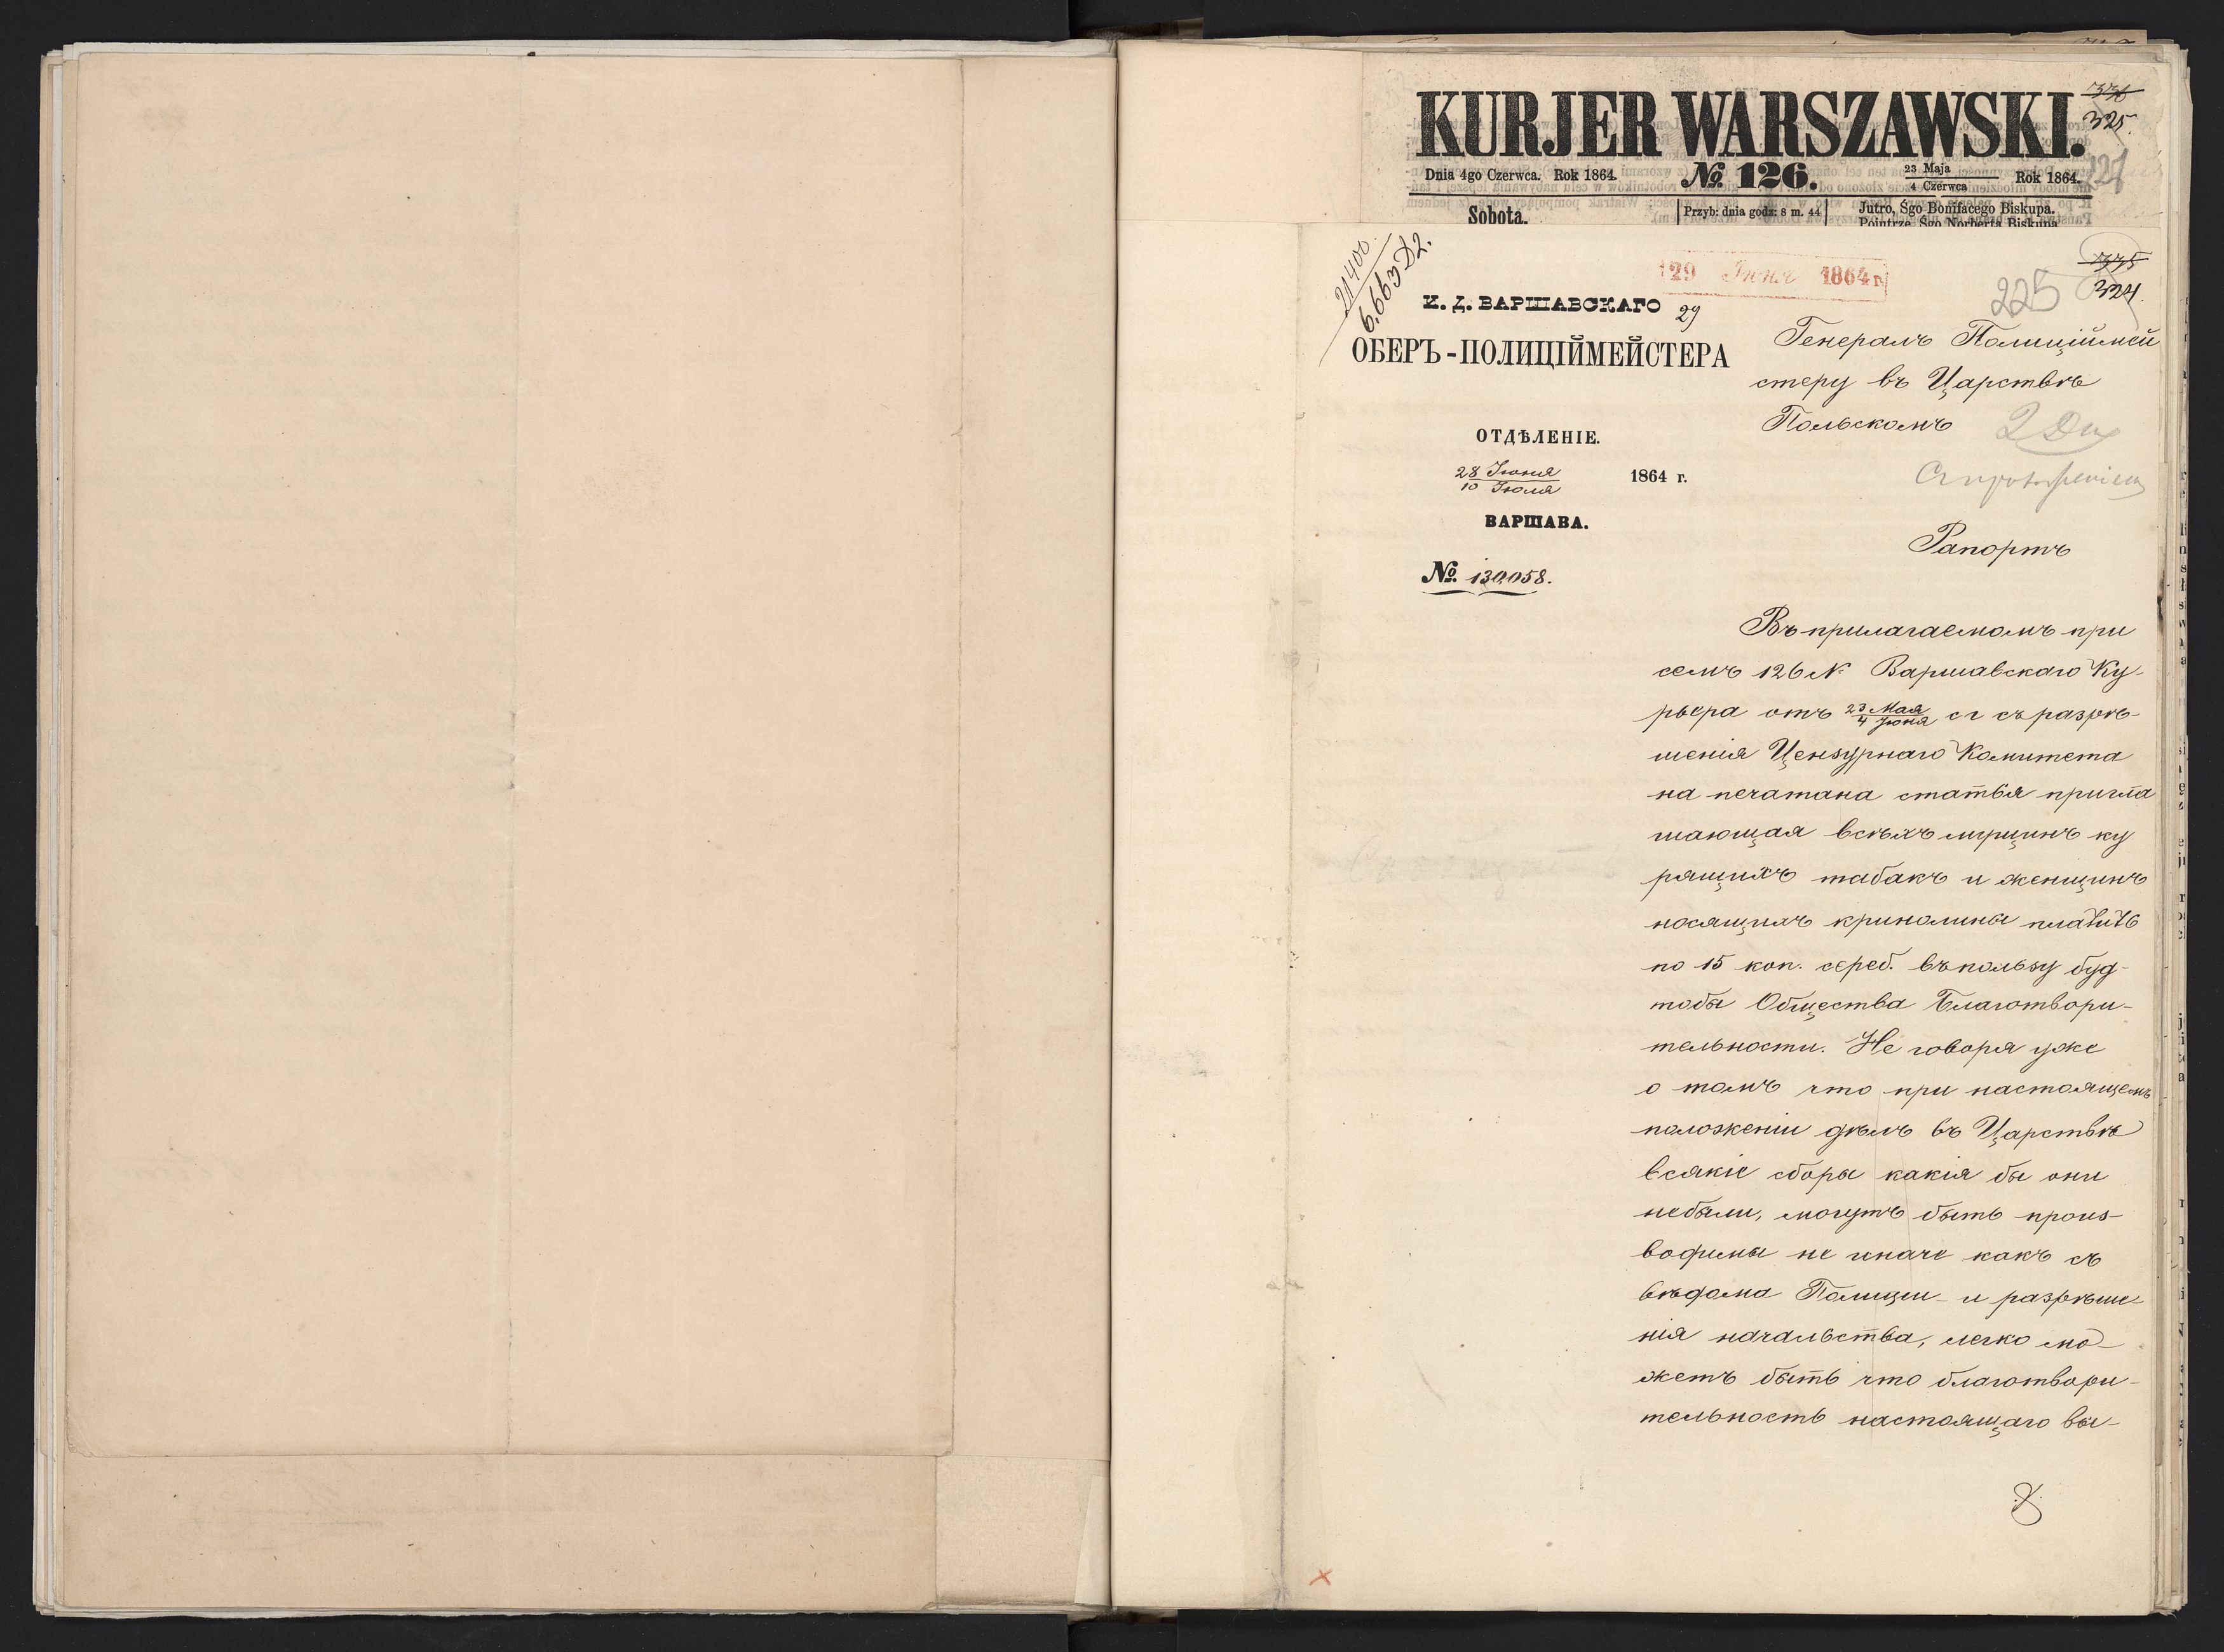 KURJER WARSZAWSKI.
325.
Dnia 4go Czerwca. Rok 1864. № 126. 23 Maja / 4 Czerwca Rok 1864.
Sobota. Przyb: dnia godz: 8 m. 44 Jutro, Śgo Bonifacego Biskupa.
Pojutrze, Śgo Norberta Biskupa
21400
6,663 Д2.
29 Июня 1864 г.
29
225
324.
И. Д. ВАРШАВСКАГО
ОБЕРЪ-ПОЛИЦІЙМЕЙСТЕРА
ОТДѢЛЕНІЕ.
28 Іюня / 10 Іюля 1864 г.
ВАРШАВА.
№ 130058.
Генералъ Полиціймей
стеру въ Царствѣ
Польскомъ
Рапортъ
Въ прилагаемомъ при
семъ 126 № Варшавскаго Ку-
рьера отъ 23 Мая / 4 Іюня сг съ разрѣ-
шенія Цензурнаго Комитета
на печатана статья пригла
шающая всѣхъ мущинъ ку
рящихъ табакъ и женщинъ
носящихъ кринолины платить
по 15 коп. сереб. въ пользу буд-
тобы Общества Благотвори-
тельности. Не говоря уже
о томъ что при настоящемъ
положеніи дѣлъ въ Царствѣ
всякіе сборы какія бы они
небыли, могутъ быть произ-
водимы не иначе какъ съ
вѣдома Полиціи и разрѣше-
нія начальства, легко мо-
жетъ быть что благотвори-
тельность настоящаго вы-